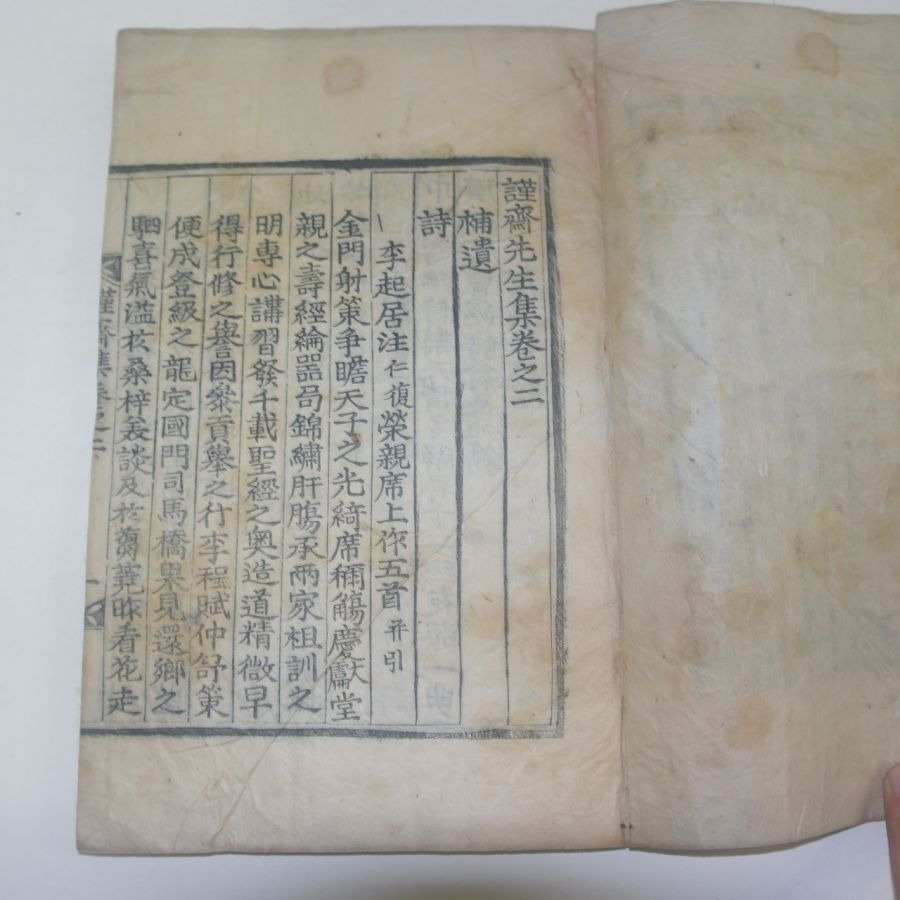 謹齋先生集卷之二
補遺
詩
李起居注仁復榮親席上作五首并引
金門射策爭瞻天子之光綺席稱觴慶獻堂
親之壽經綸器局錦繡肝膓承兩家祖訓之
明專心講習發千載聖經之奧造道精微早
得行修之譽因參貢擧之行李程賦仲舒策
便成登級之龍定國門司馬橋畢見還鄕之
駟喜氣溢於桑梓羙談及於蒭蕘昨看花走
謹齋集卷之二 一